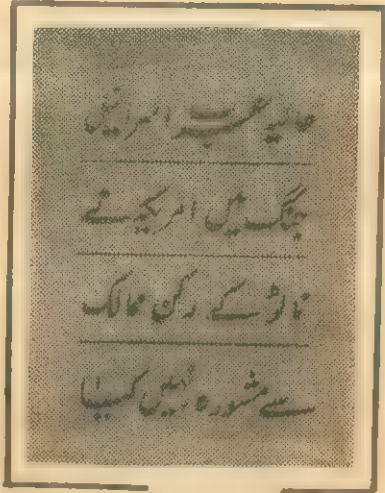 حالیہ عرب اسرائیل
جنگ میں امریکہ نے
ناٹو کے رکن ممالک
سے مشورہ نہیں کیا